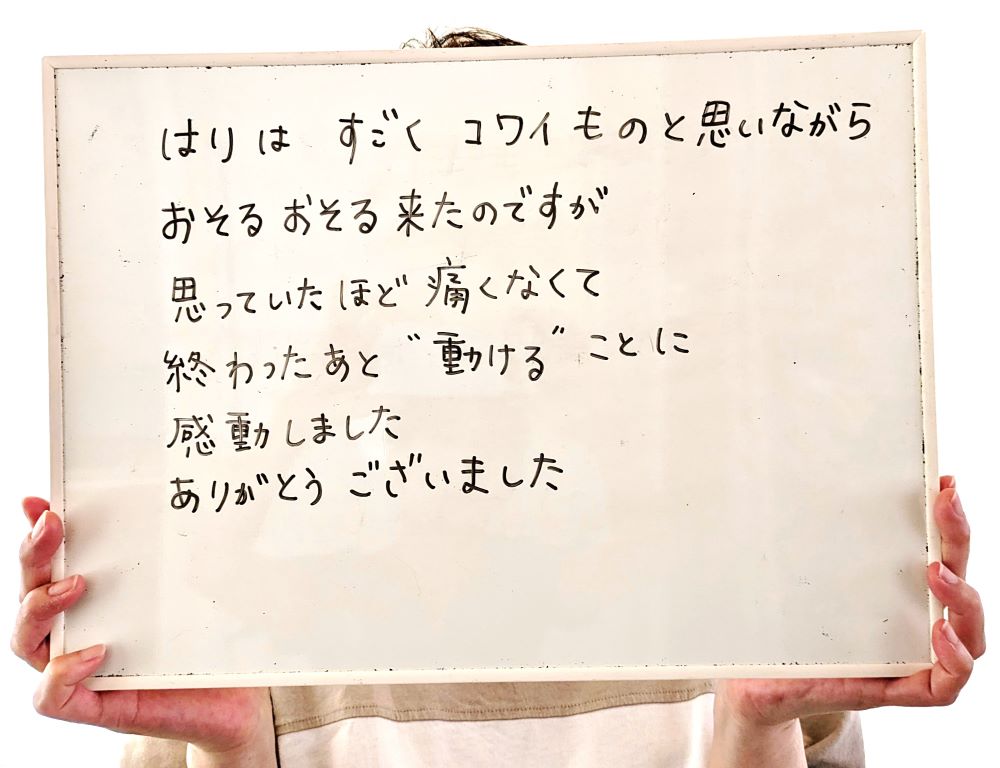 はりは すごく コワイ ものと思いながら
おそるおそる来たのですが
思っていたほど痛くなくて
終わったあと〝動ける〞ことに
感動しました
ありがとう ございました